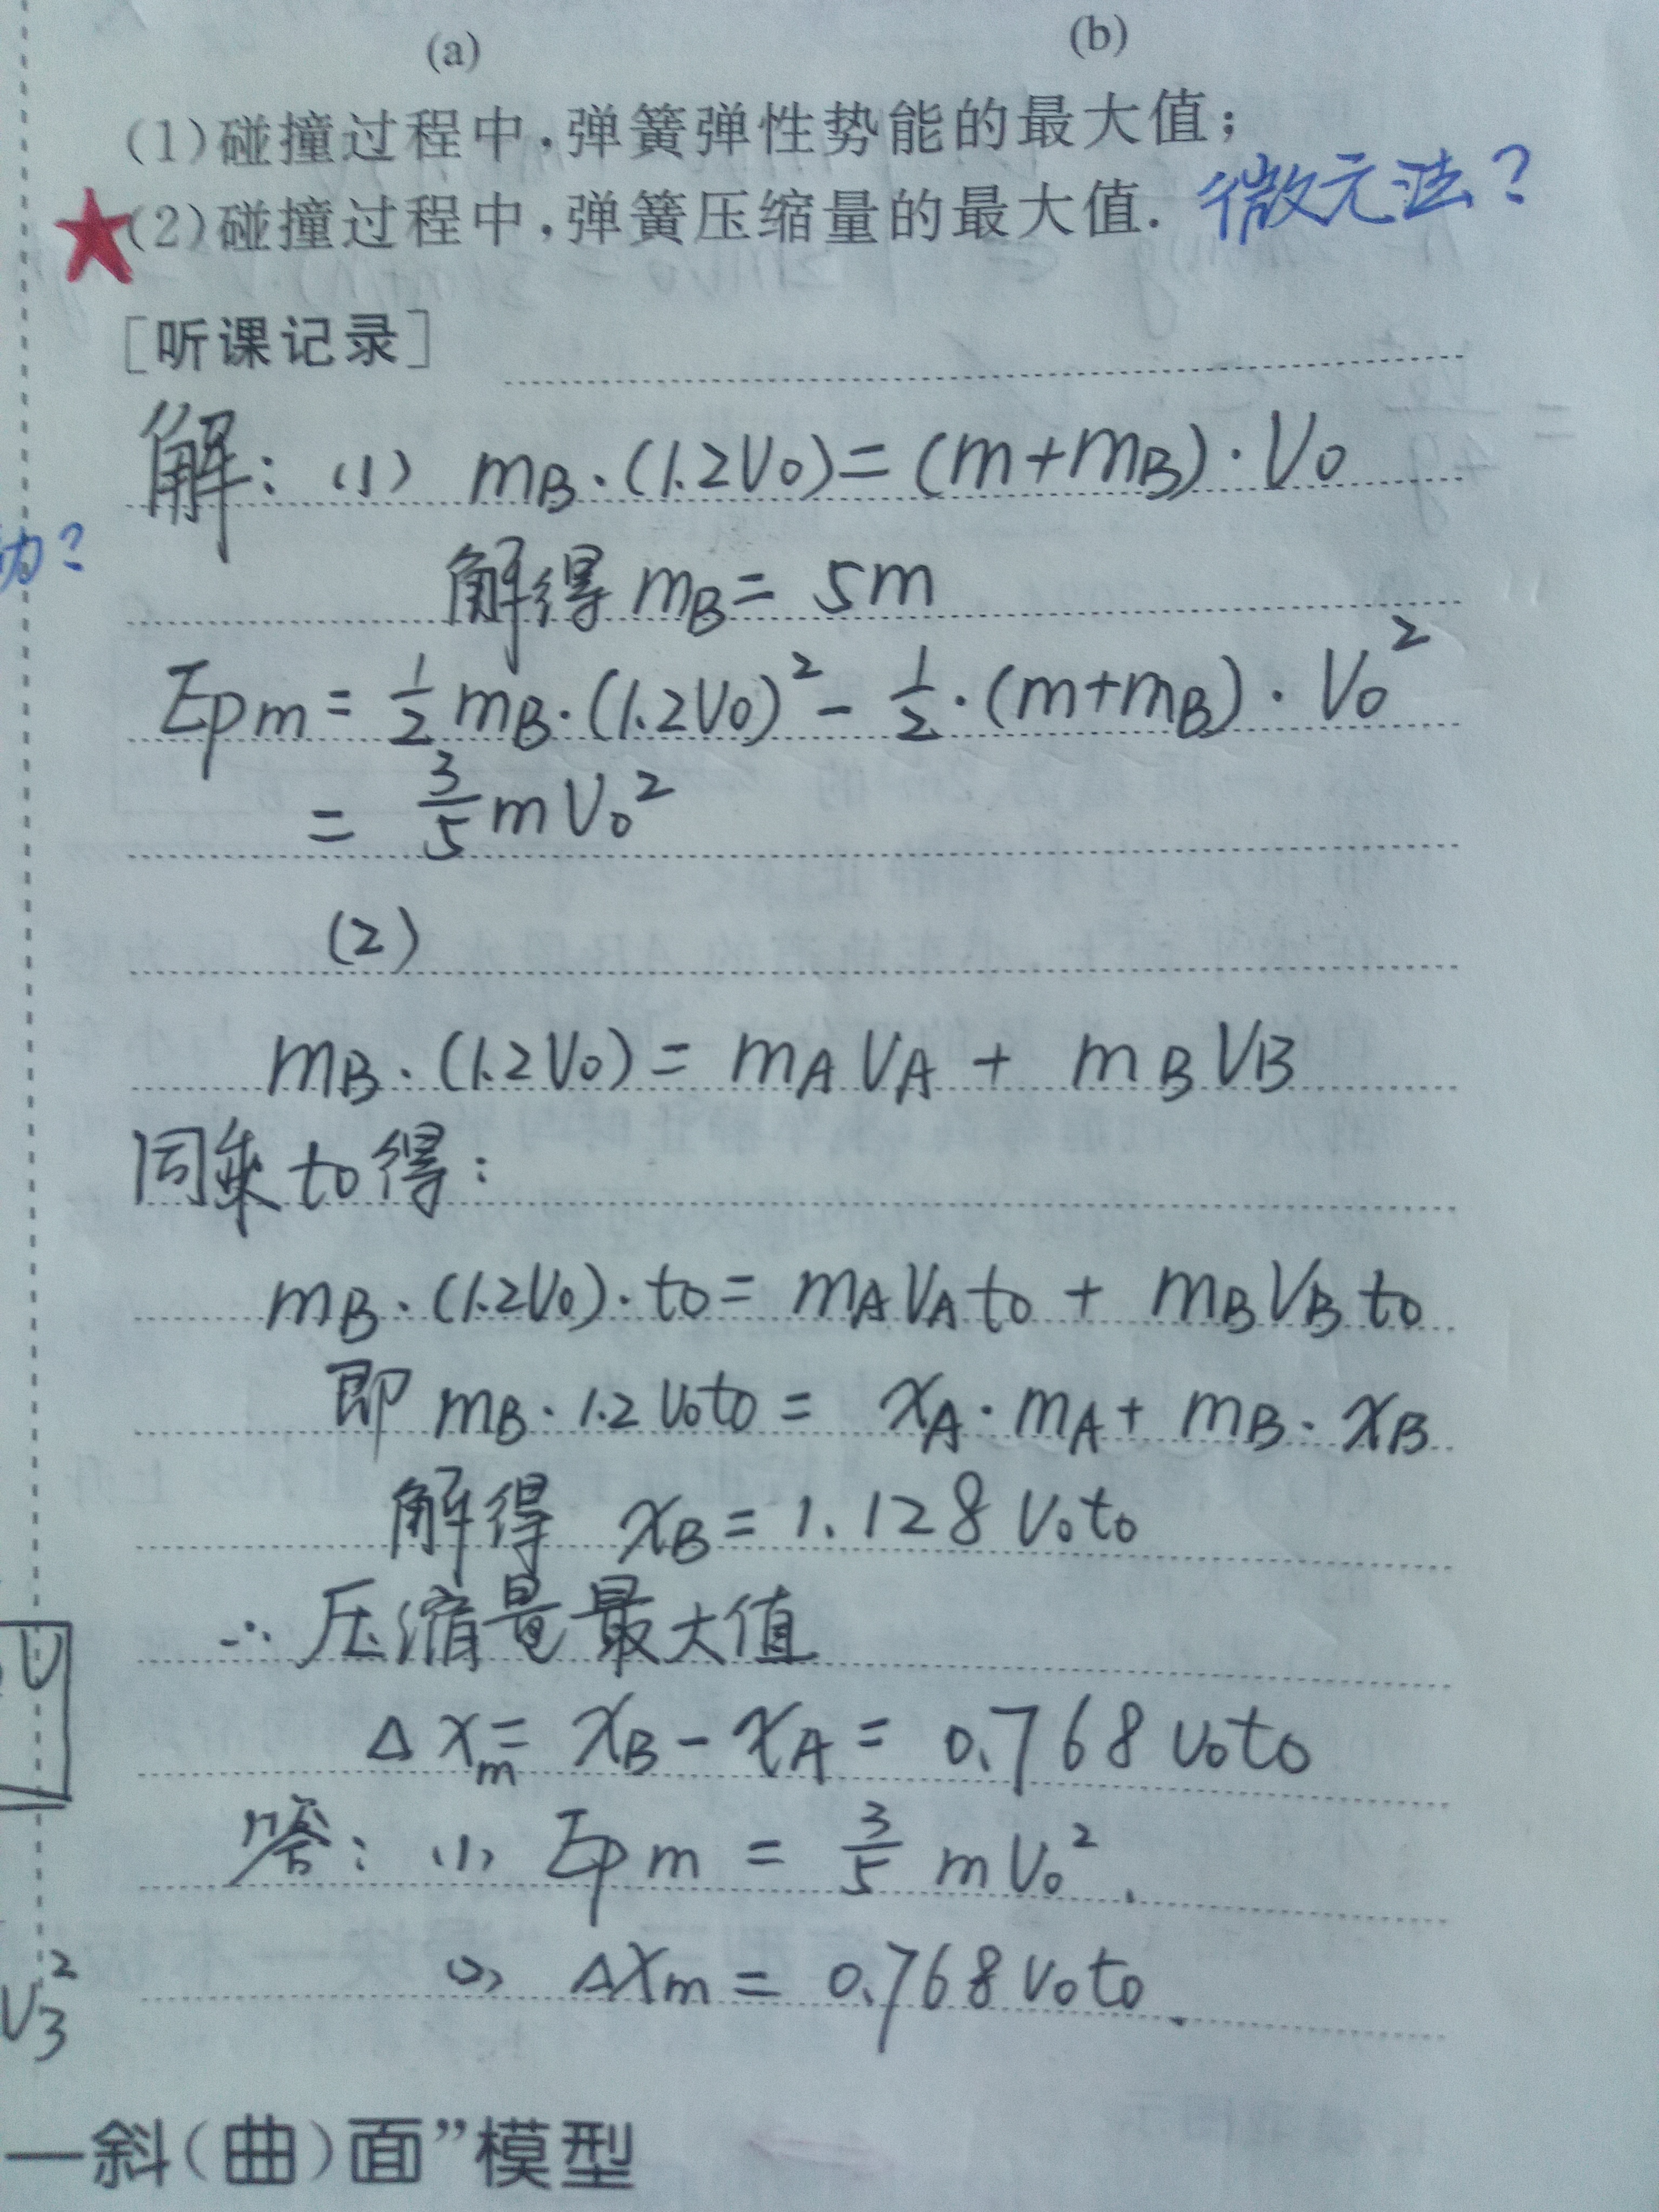 (a) (b)
(1)碰撞过程中,弹簧弹性势能的最大值;
(2)碰撞过程中,弹簧压缩量的最大值. 微元法?
[听课记录]
解: (1) mB·(1.2V0)=(m+mB)·V0
解得 mB= 5m
Epm = 1/2 mB·(1.2V0)² - 1/2·(m+mB)·V0²
= 3/5 mV0²
(2)
mB·(1.2V0)= mAVA + mBVB
同乘 t0 得:
mB·(1.2V0)·t0= mAVAt0 + mBVBt0
即 mB·1.2V0t0 = xA·mA+ mB·xB
解得 xB = 1.128 V0t0
∴ 压缩量最大值
Δxm= xB - xA = 0.768 V0t0
答: (1) Epm = 3/5 mV0².
(2) ΔXm = 0.768 V0t0.
V3²
一斜(曲)面”模型